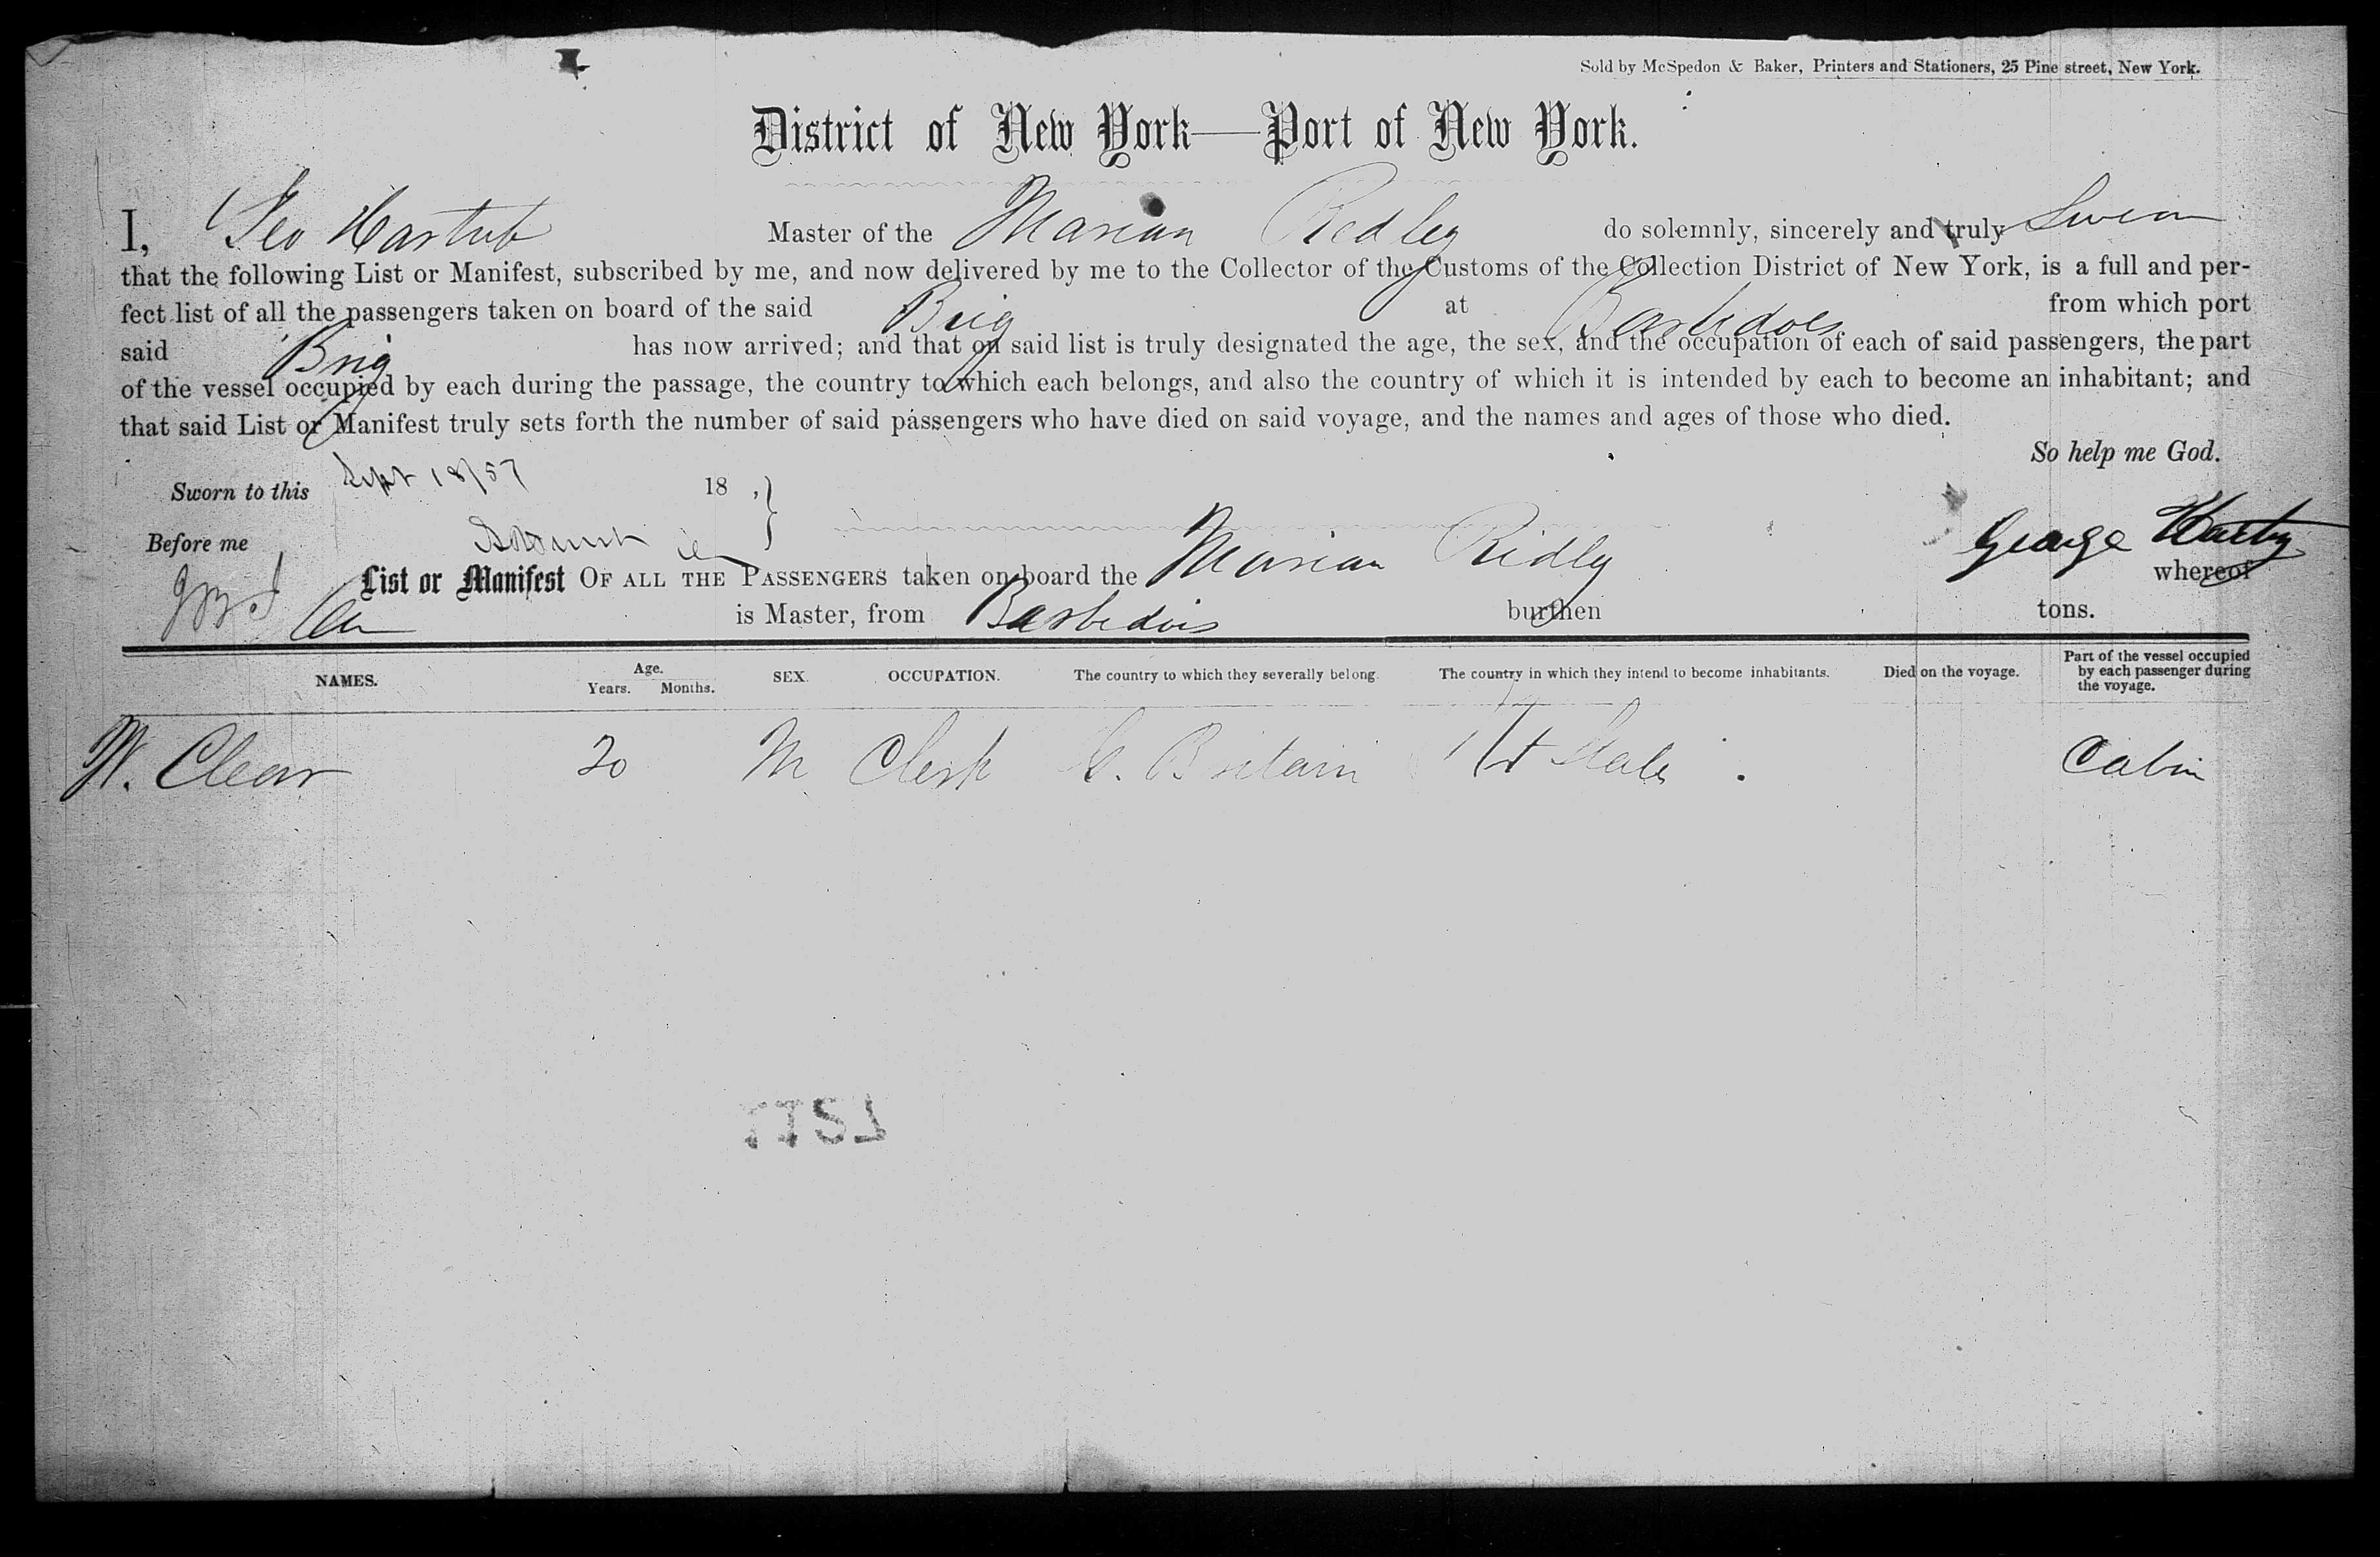 Sold by McSpedon & Baker, Printers and Stationers, 25 Pine street, New York.
District of New York—Port of New York.
I, Geo Master of the Marian Ridley do solemnly, sincerely and truly Swear
that the following List or Manifest, subscribed by me, and now delivered by me to the Collector of the Customs of the Collection District of New York, is a full and per-
fect list of all the passengers taken on board of the said Brig at Barbedoes from which port
said Brig has now arrived; and that on said list is truly designated the age, the sex, and the occupation of each of said passengers, the part
of the vessel occupied by each during the passage, the country to which each belongs, and also the country of which it is intended by each to become an inhabitant; and
that said List or Manifest truly sets forth the number of said passengers who have died on said voyage, and the names and ages of those who died.
So help me God.
Sworn to this Sept 18/57 18 ,}
Before me
George
List or Manifest OF ALL THE PASSENGERS taken on board the Marian Ridley whereof
is Master, from Barbedoes burthen tons.
NAMES. Age. Years. Months. SEX. OCCUPATION. The country to which they severally belong. The country in which they intend to become inhabitants. Died on the voyage. Part of the vessel occupied by each passenger during the voyage.
W. Clear 20 M Clerk G. Britain Ut States Cabin